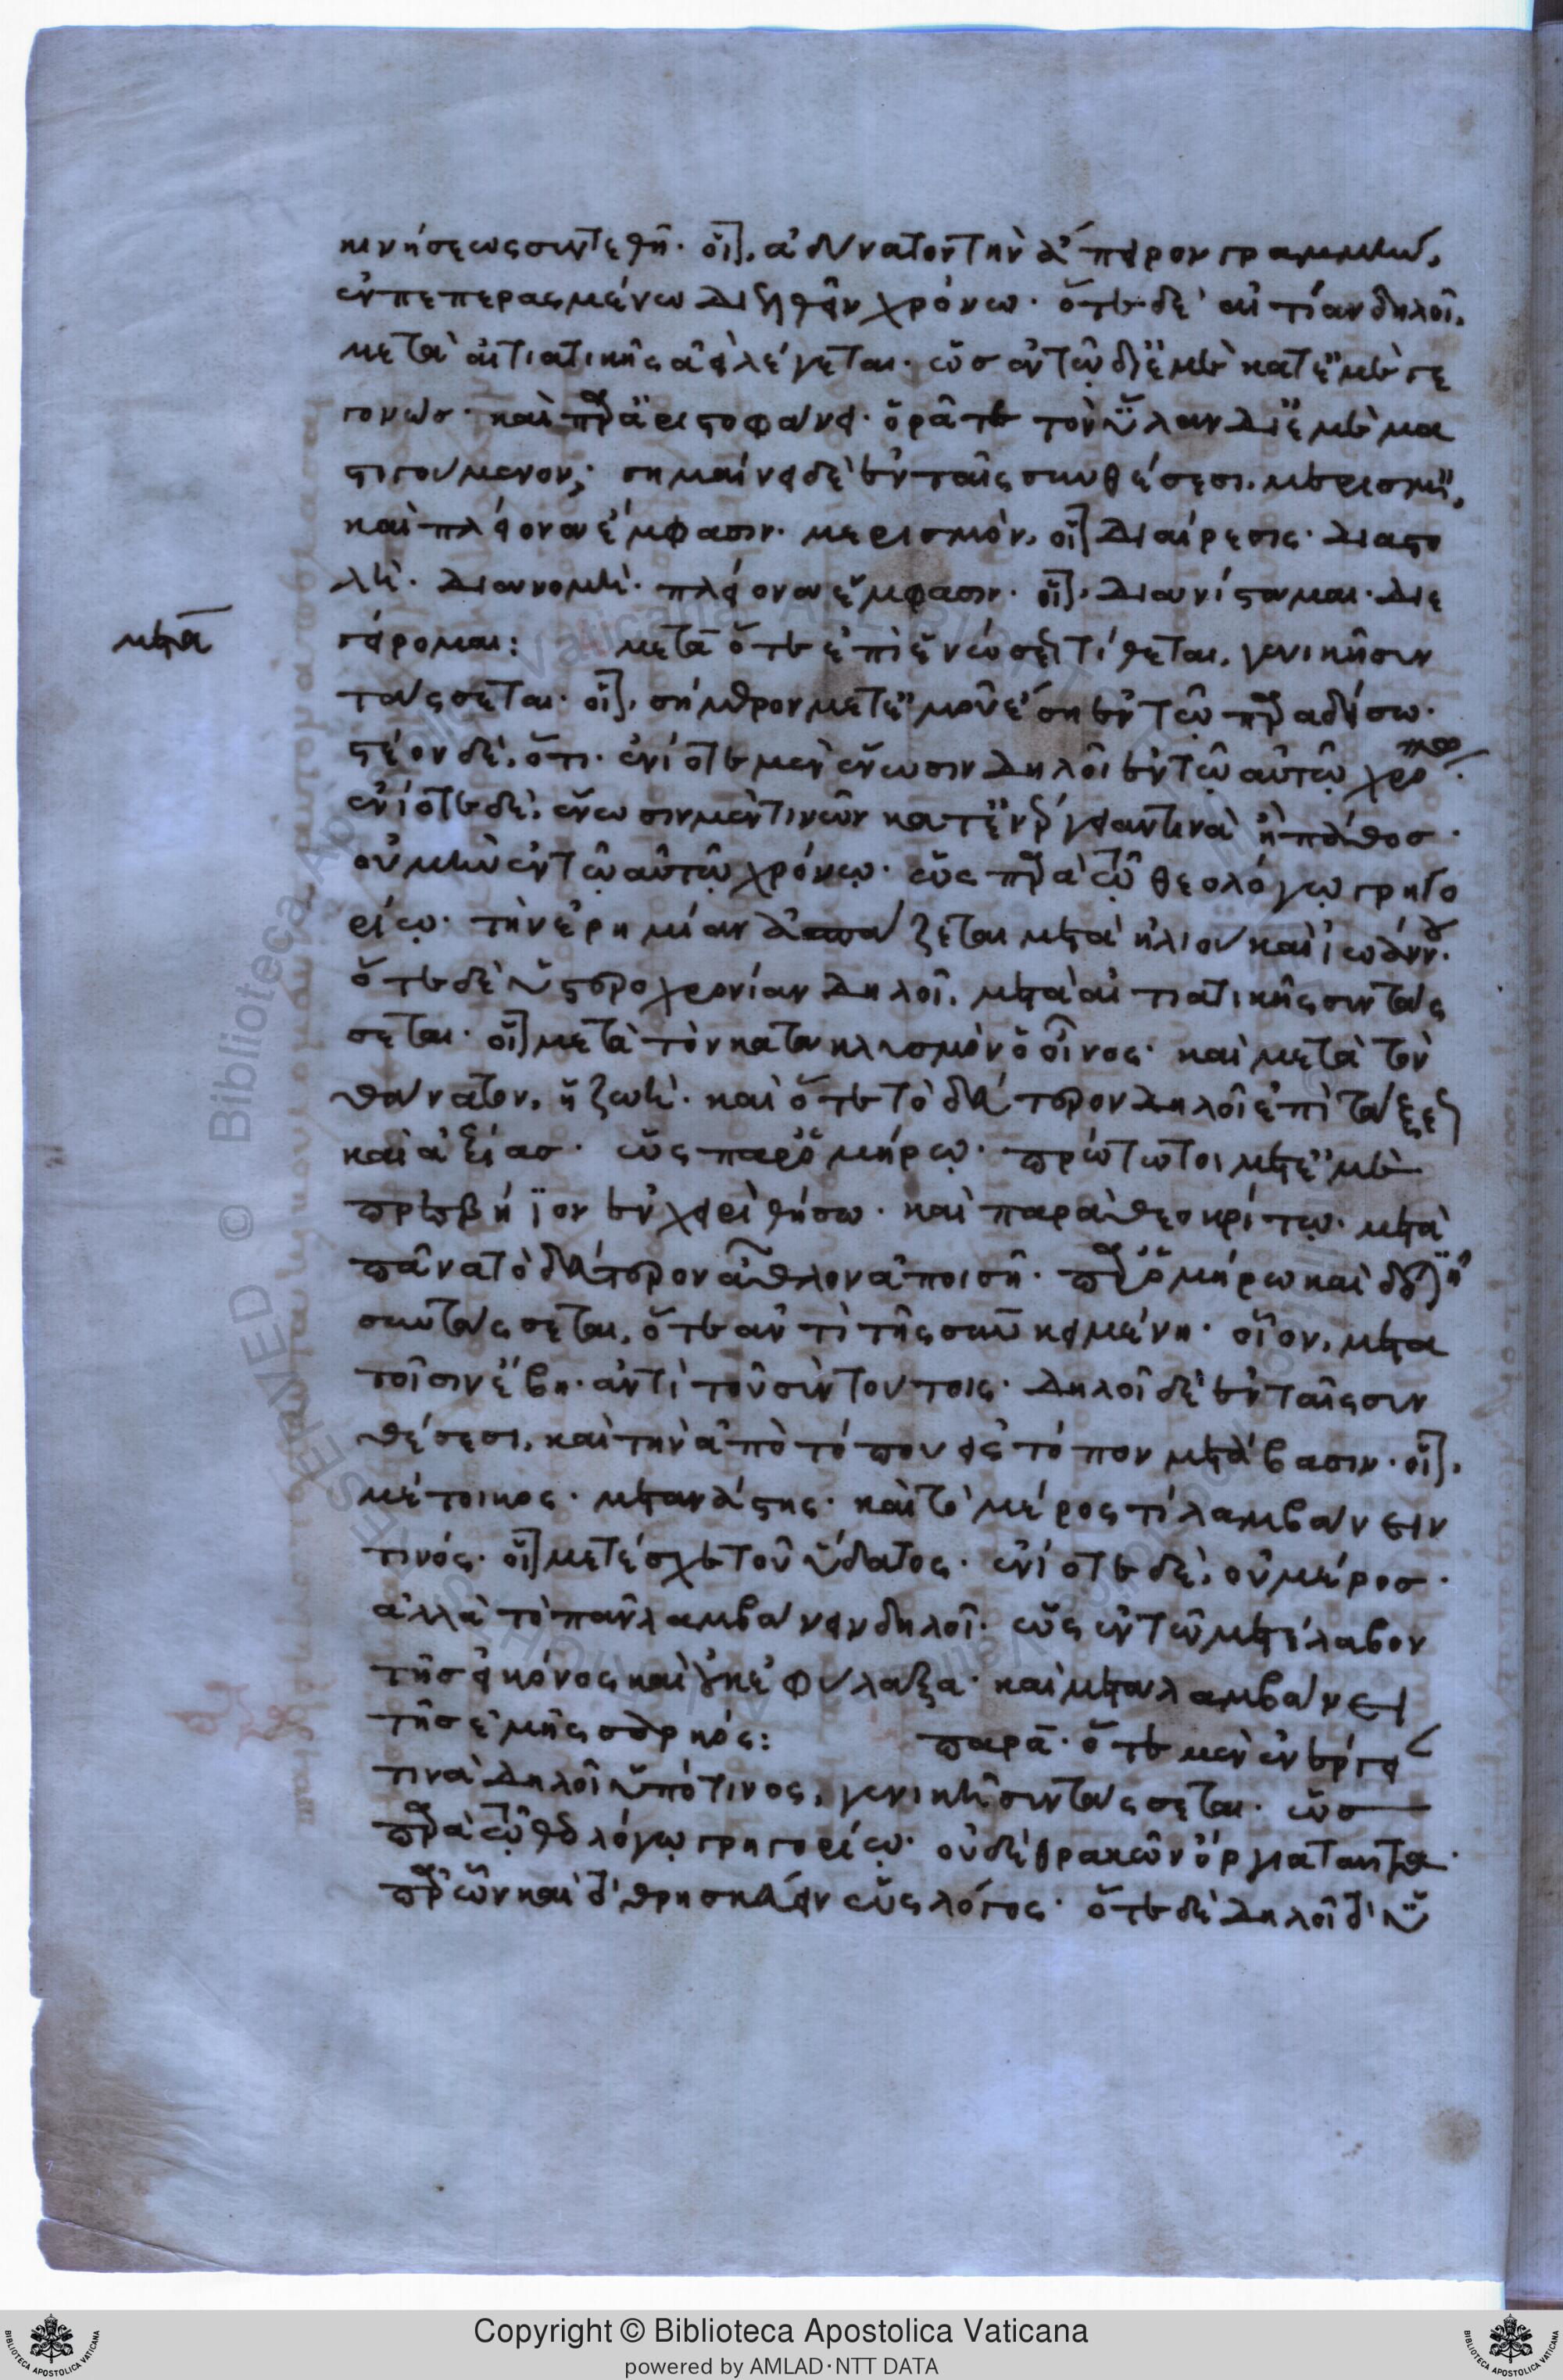 κινήσεως συντεθῆ. οἷ, ἀδύνατον τὴν ἄπειρον γραμμὴν,
ἐν πεπερασμένω διελθεῖν χρόνω. ὅτε δὲ αἰτίαν δηλοῖ,
μετὰ αἰτιατικῆς ἀεὶ λέγεται. ὡς ἐν τῶ δι' ἐμὲ κατ' ἐμὲ γε
γονώς. καὶ παρ' ἀριστοφάνει. ὁρᾶτε τὸν ὕλαν δι' ἐμὲ μα
στιγούμενον; σημαίνει δὲ ἐν ταῖς συνθέσεσι, μερισμὸν,
καὶ πλείονα ἔμφασιν. μερισμὸν, οἷ διαίρεσις. διαστο
λή. διανομή. πλείονα ἔμφασιν. οἷ, διανίσταμαι. διε
γείρομαι:
μετὰ ὅτε ἐπὶ ἑνώσει τίθεται, γενικῆ συν
μετὰ
τάσσεται. οἷ, σήμερον μετ' ἐμοῦ ἔση ἐν τῶ παραδείσω.
στέον δὲ, ὅτι. ἐνίοτε μὲν ἕνωσιν δηλοῖ ἐν τῶ αὐτῶ χρό
ἐνίοτε δὲ, ἕνωσιν μὲν τινῶν κατ' ἐνέργειαν τινὰ ἢ πάθος.
οὐ μὴν ἐν τῶ αὐτῶ χρόνω. ὡς παρὰ τῶ θεολόγω γρηγο
ρίω. τὴν ἐρημίαν ἀσπάζεται μετὰ ἠλιοὺ καὶ ἰωάνν.
ὅτε δὲ ὑστεροχρονίαν δηλοῖ, μετὰ αἰτιατικῆς συντάς
σεται. οἷ μετὰ τὸν κατακλυσμὸν ὁ οἶνος. καὶ μετὰ τὸν
θάνατον, ἡ ζωή. καὶ ὅτε τὸ δεύτερον δηλοῖ ἐπὶ τάξεως
καὶ ἀξίας. ὡς παρ' ὁμήρω. πρώτω τοι μετ' ἐμὲ
πρεσβήϊον ἐν χειρὶ θήσω. καὶ παρὰ θεοκρίτω. μετὰ
πᾶνα τὸ δεύτερον ἆθλον ἀποισῆ. παρ' ὁμήρω καὶ δοτικῆ
συντάσσεται, ὅτε ἀντὶ τῆς σὺν κειμένη. οἷον, μετὰ
τοῖσιν ἔβη. ἀντὶ τοῦ σὺν τούτοις. δηλοῖ δὲ ἐν ταῖς συν
θέσεσι, καὶ τὴν ἀπὸ τόπου εἰς τόπον μετάβασιν. οἷ,
μέτοικος. μετανάστης. καὶ τὸ μέρος τί λαμβάνειν
τινός. οἷ μετέσχε τοῦ ὕδατος. ἐνίοτε δὲ, οὐ μέρος.
ἀλλὰ τὸ πᾶν λαμβάνειν δηλοῖ. ὡς ἐν τῶ μετέλαβον
τῆς εἰκόνος καὶ οὐκ ἐφύλαξα. καὶ μεταλαμβάνει
τῆς ἐμῆς σαρκός:
παρὰ. ὅτε μὲν ἐνέργει
τινὰ δηλοῖ ὑπό τινος, γενικῆ συντάσσεται. ὡς
παρὰ τῶ θεολόγω γρηγορίω. οὐδὲ θρακῶν ὄργια ταῦτα.
παρ' ὧν καὶ τὸ θρησκεύειν ὡς λόγος. ὅτε δὲ δηλοῖ τὸ ὑ